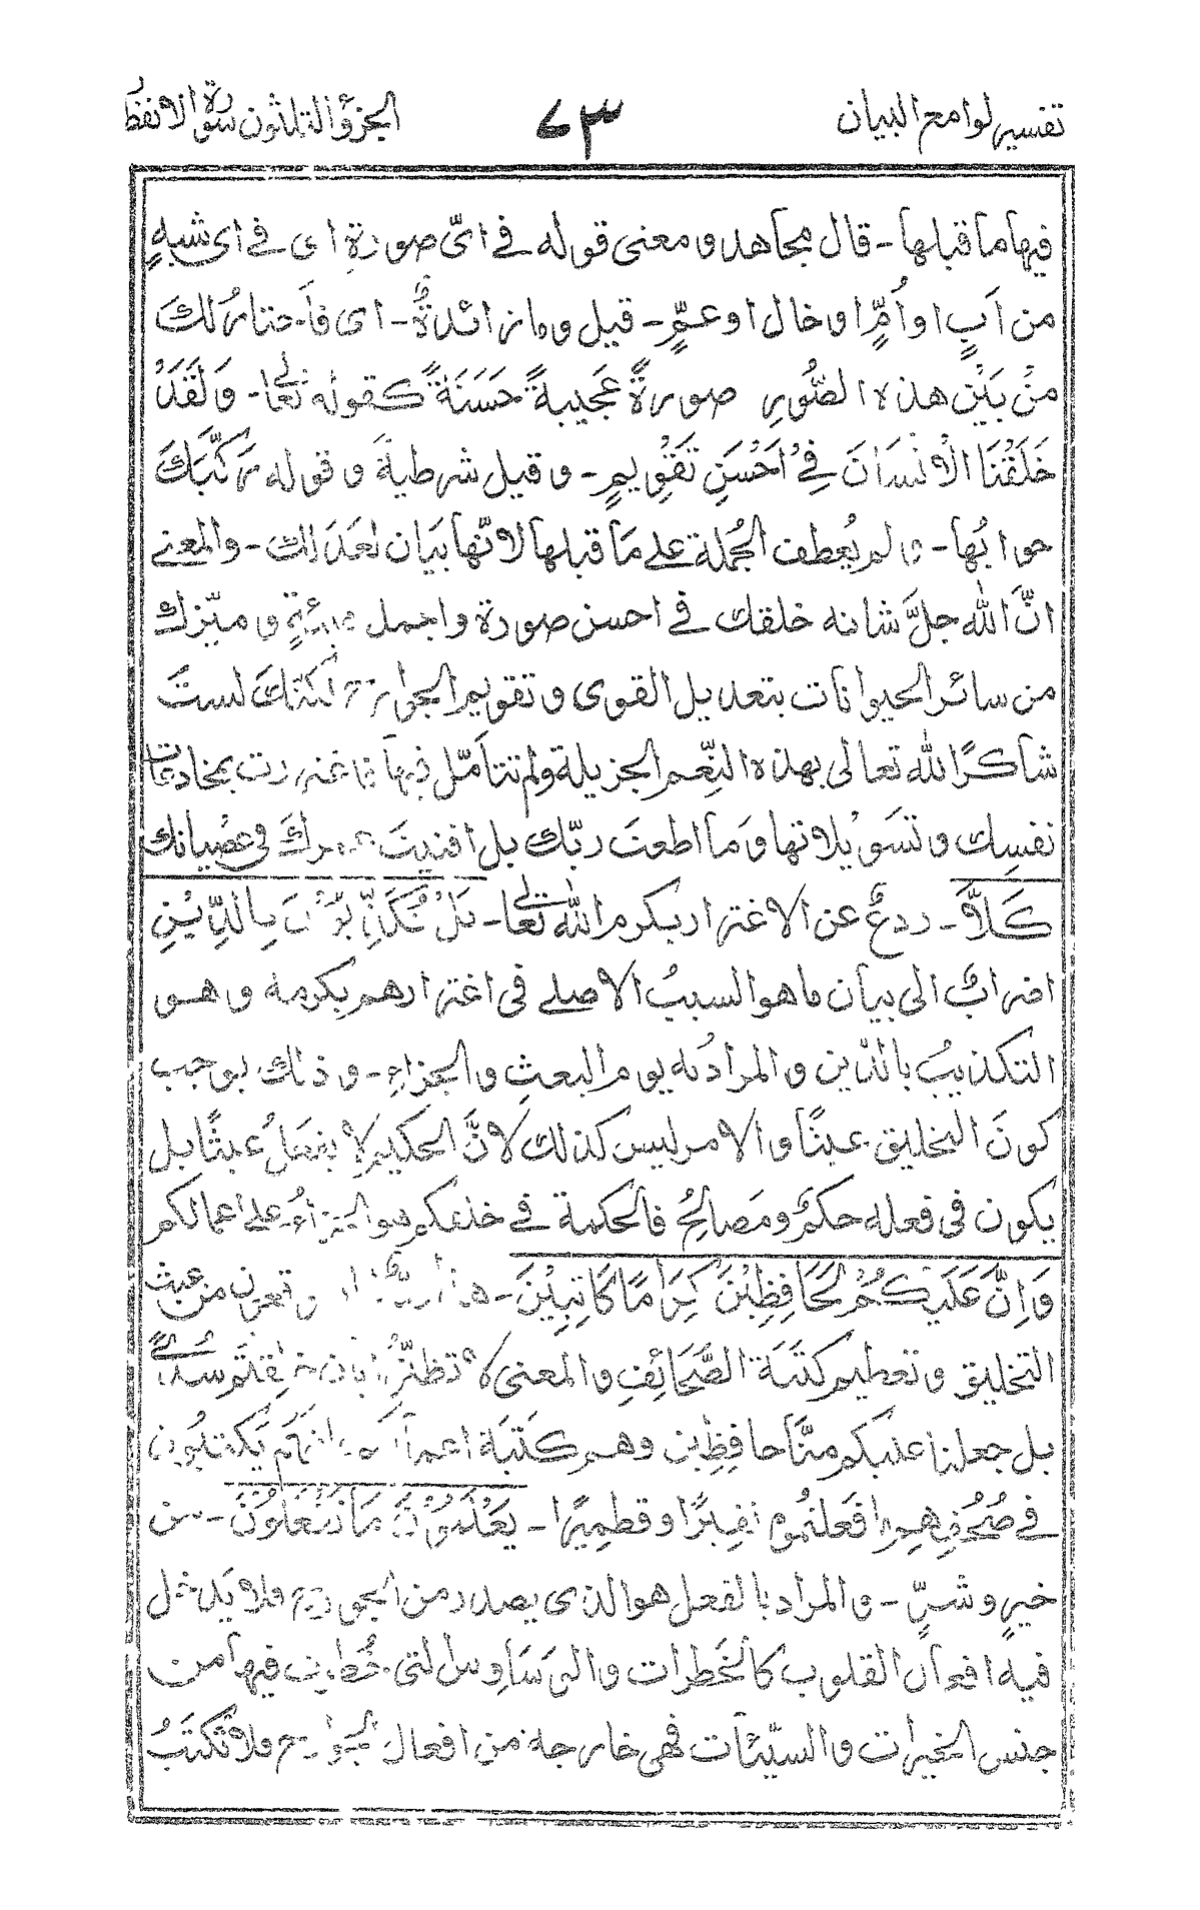 تفسير لوامع البيان ٧٣ الجزؤ الثلثون سورة الانفط
فيها ما قبلها - قال مجاهد و معنى قوله فے ایّ صورة ای فے ای شبهٍ
من اَبٍ او اُمٍّ او خال او عمٍّ - قيل و ما زائدةٌ - ای فَاختار لك
مِنْ بَيْنِ هذه الصُّورِ صورةً عَجيبةً حَسَنَةً كقوله تعالٰى - وَلَقَدْ
خَلَقْنَا الْاِنْسَانَ فِيْ اَحْسَنِ تَقْوِيمٍ - و قيل شرطيةَ و قوله رَكَّبَكَ
جوابُها - و لم يُعطف الجُملة علے مَا قبلها لانّها بيان لعَدَلك - والمعنے
انَّ الله جلَّ شانه خلقك فے احسن صورة و اجمل هيئةٍ و ميّزك
من سائر الحيوانات بتعديل القوى و تقويم الجوارح لكنّك لستَ
شاكرًا لله تعالى بهذه النِّعم الجزيلة ولم تتأمّل فيها فاغتررت بمخادعات
نفسِك و تسَويلاتها و مَا اطعتَ ربّك بل افنيتَ عمرك فى عصْيانك
كَلَّا - ردعٌ عن الاغترار بكرم الله تعالٰى - بَلْ تُكَذِّبُوْنَ بِالدِّيْنِ
اضرابٌ الى بيان ما هو السببُ الاصلے فى اغترارهم بِكرمه و هو
التكذيبُ بالدّين و المرادُ به يوم البعثِ و الجزاءِ - و ذلك يوجب
كونَ التخليق عبثًا و الامر ليس كذلك لانَّ الحكيم لا يفعلُ عبثًا بل
يكون فى فعله حكمٌ و مَصالحُ فالحكمة فے خلقكم هو الجزاءُ على اعمالكم
وَاِنَّ عَلَيْكُمْ لَحَافِظِيْنَ كِرَامًا كَاتِبِيْنَ - هذا و تعرٍ من عبث
التخليق و تعظيم كَتَبَة الصَّحائِفِ و المعنى لا تظنّوا بان خلقتم سدًى
بل جعلنا عليكم منَّا حافِظِين و هم كَتَبَة اعمالكم انهم يَكتبُون
فے صُحُفِهم ما فَعلتموه نقيرًا و قطميرًا - يَعْلَمُوْنَ مَا تَفْعَلُوْنَ - من
خيرٍ و شرٍّ - و المراد بالفعل هو الذى يصدر من الجوارح فلا يدخل
فيه افعال القلوب كالخَطرات و الوَسَاوس التى خُطِرت فيها من
جنس الخيرات و السيّئات فهى خارجة من افعال الجوارح فلا تُكتَبُ